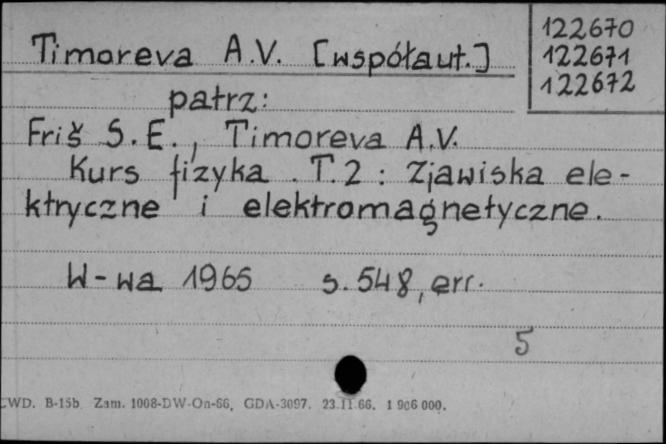 Timoreva A.V. [współaut.]
122670
122671
122672
patrz:
Friš S.E., Timoreva A.V.
Kurs fizyka. T.2 : Zjawiska ele-
ktryczne i elektromagnetyczne.
W-wa 1965 s. 548, err.
5
CWD. B-15b Zam. 1008-DW-On-66, GDA-3097. 23.11.66. 1 906 000.